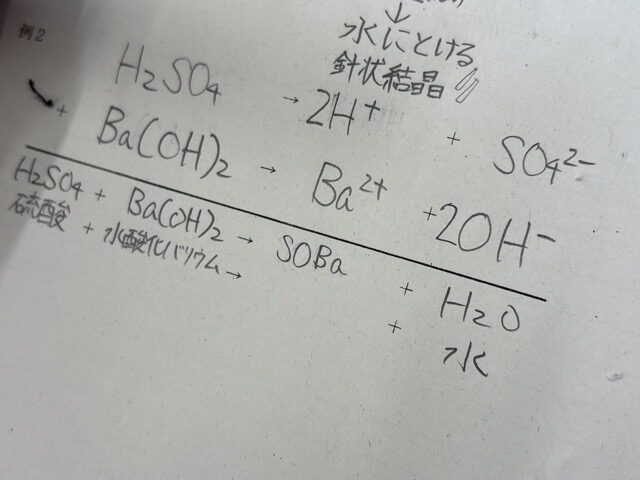 例2
水にとける
針状結晶
H₂SO₄ → 2H⁺ + SO₄²⁻
+ Ba(OH)₂ → Ba²⁺ + 2OH⁻
H₂SO₄ + Ba(OH)₂ → SOBa + H₂O
硫酸 + 水酸化バリウム → + 水